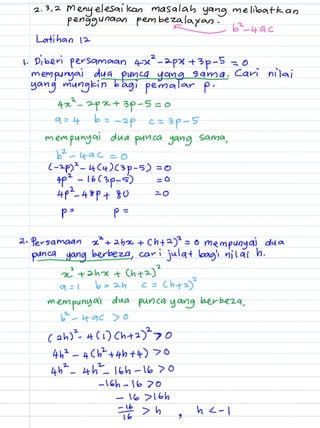 2.3.2 Menyelesaikan masalah yang melibatkan
penggunaan pembezalayan.
b²-4ac
Latihan 12
1. Diberi persamaan 4x²-2px+3p-5=0
mempunyai dua punca yang sama. Cari nilai
yang mungkin bagi pemalar p.
4x²-2px+3p-5=0
a=4 b=-2p c=3p-5
mempunyai dua punca yang sama,
b²-4ac=0
(-2p)²-4(4)(3p-5)=0
4p²-16(3p-5)=0
4p²-48p+80=0
p= p=
2. Persamaan x²+2hx+(h+2)²=0 mempunyai dua
punca yang berbeza, cari julat bagi nilai h.
x²+2hx+(h+2)²
a=1 b=2h c=(h+2)²
mempunyai dua punca yang berbeza,
b²-4ac>0
(2h)²-4(1)(h+2)²>0
4h²-4(h²+4h+4)>0
4h²-4h²-16h-16>0
-16h-16>0
-16>16h
-16/16>h, h<-1